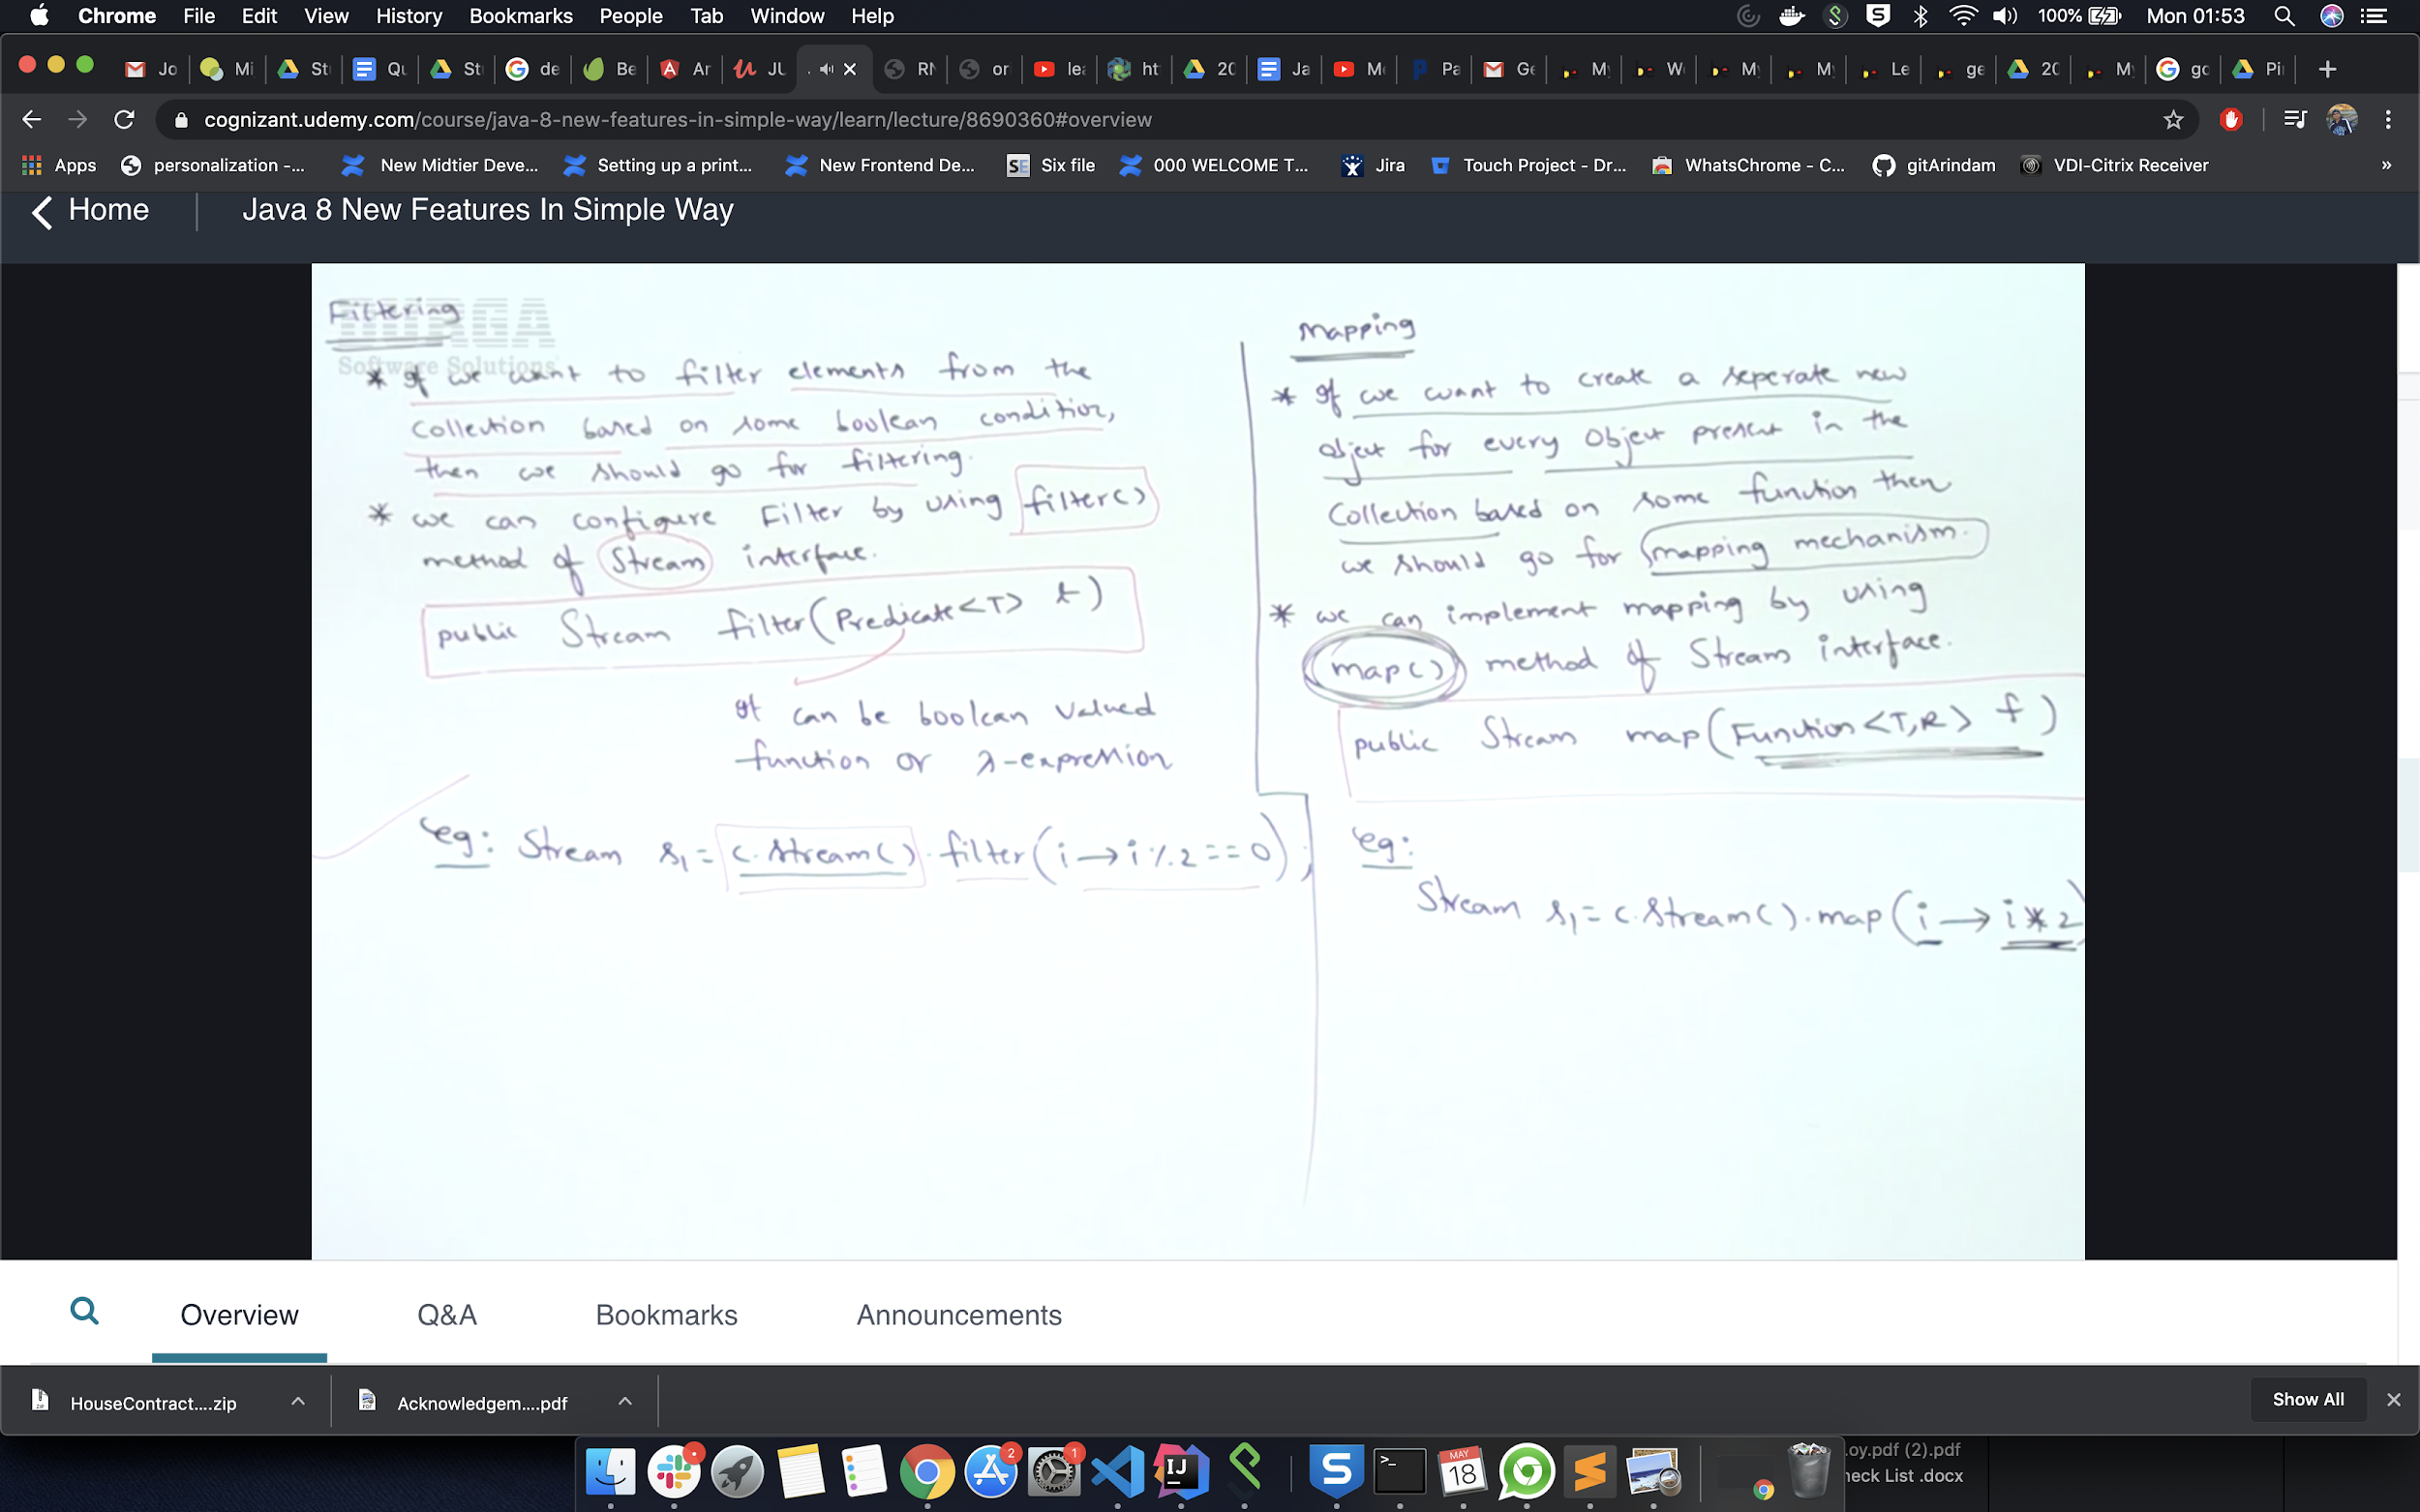 Chrome File Edit View History Bookmarks People Tab Window Help 100% Mon 01:53
Jo Mi St Qu St de Be Ar JU RN or le ht 20 Ja M Pa Ge My W My My Le ge 20 My go Pi
cognizant.udemy.com/course/java-8-new-features-in-simple-way/learn/lecture/8690360#overview
Apps personalization -... New Midtier Deve... Setting up a print... New Frontend De... SE Six file 000 WELCOME T... Jira Touch Project - Dr... WhatsChrome - C... gitArindam VDI-Citrix Receiver »
Home Java 8 New Features In Simple Way
Filtering
DURGA
Software Solutions
* If we want to filter elements from the
collection based on some boolean condition,
then we should go for filtering.
* we can configure Filter by using filter()
method of Stream interface.
public Stream filter(Predicate<T> t)
It can be boolean valued
function or λ-expression
eg: Stream s1 = c.stream().filter(i→i%2==0);
Mapping
* If we want to create a seperate new
object for every object present in the
collection based on some function then
we should go for mapping mechanism.
* we can implement mapping by using
map() method of Stream interface.
public Stream map(Function<T,R> f)
eg:
Stream s1 = c.stream().map(i→i*2)
Overview Q&A Bookmarks Announcements
HouseContract....zip Acknowledgem....pdf Show All
2 1 IJ S MAY 18
.oy.pdf (2).pdf
heck List .docx